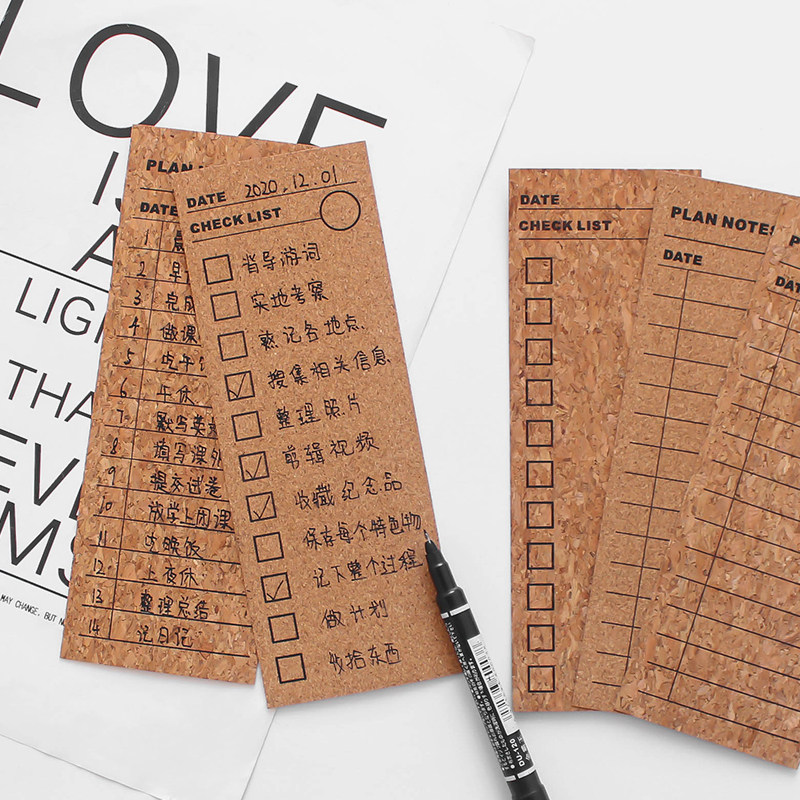 LOVE
IS
A
LIGH
THA
EVE
MS
MAY CHANGE, BUT N
PLAN
DATE
1
2 早
3 完成
4 做课
5 吃午
6 午休
7 默写英
8 填写课外
9 提交试卷
10 放学上闭课
11 吃晚饭
12 上夜休
13 整理总结
14 记日记
DATE 2020.12.01
CHECK LIST
背导游词
实地考察
熟记各地点、
搜集相关信息
整理照片
剪辑视频
收藏纪念品
保存每个特色物
记下整个过程
做计划
收拾东西
DATE
CHECK LIST
PLAN NOTES
DATE
P
DAT
DU-120